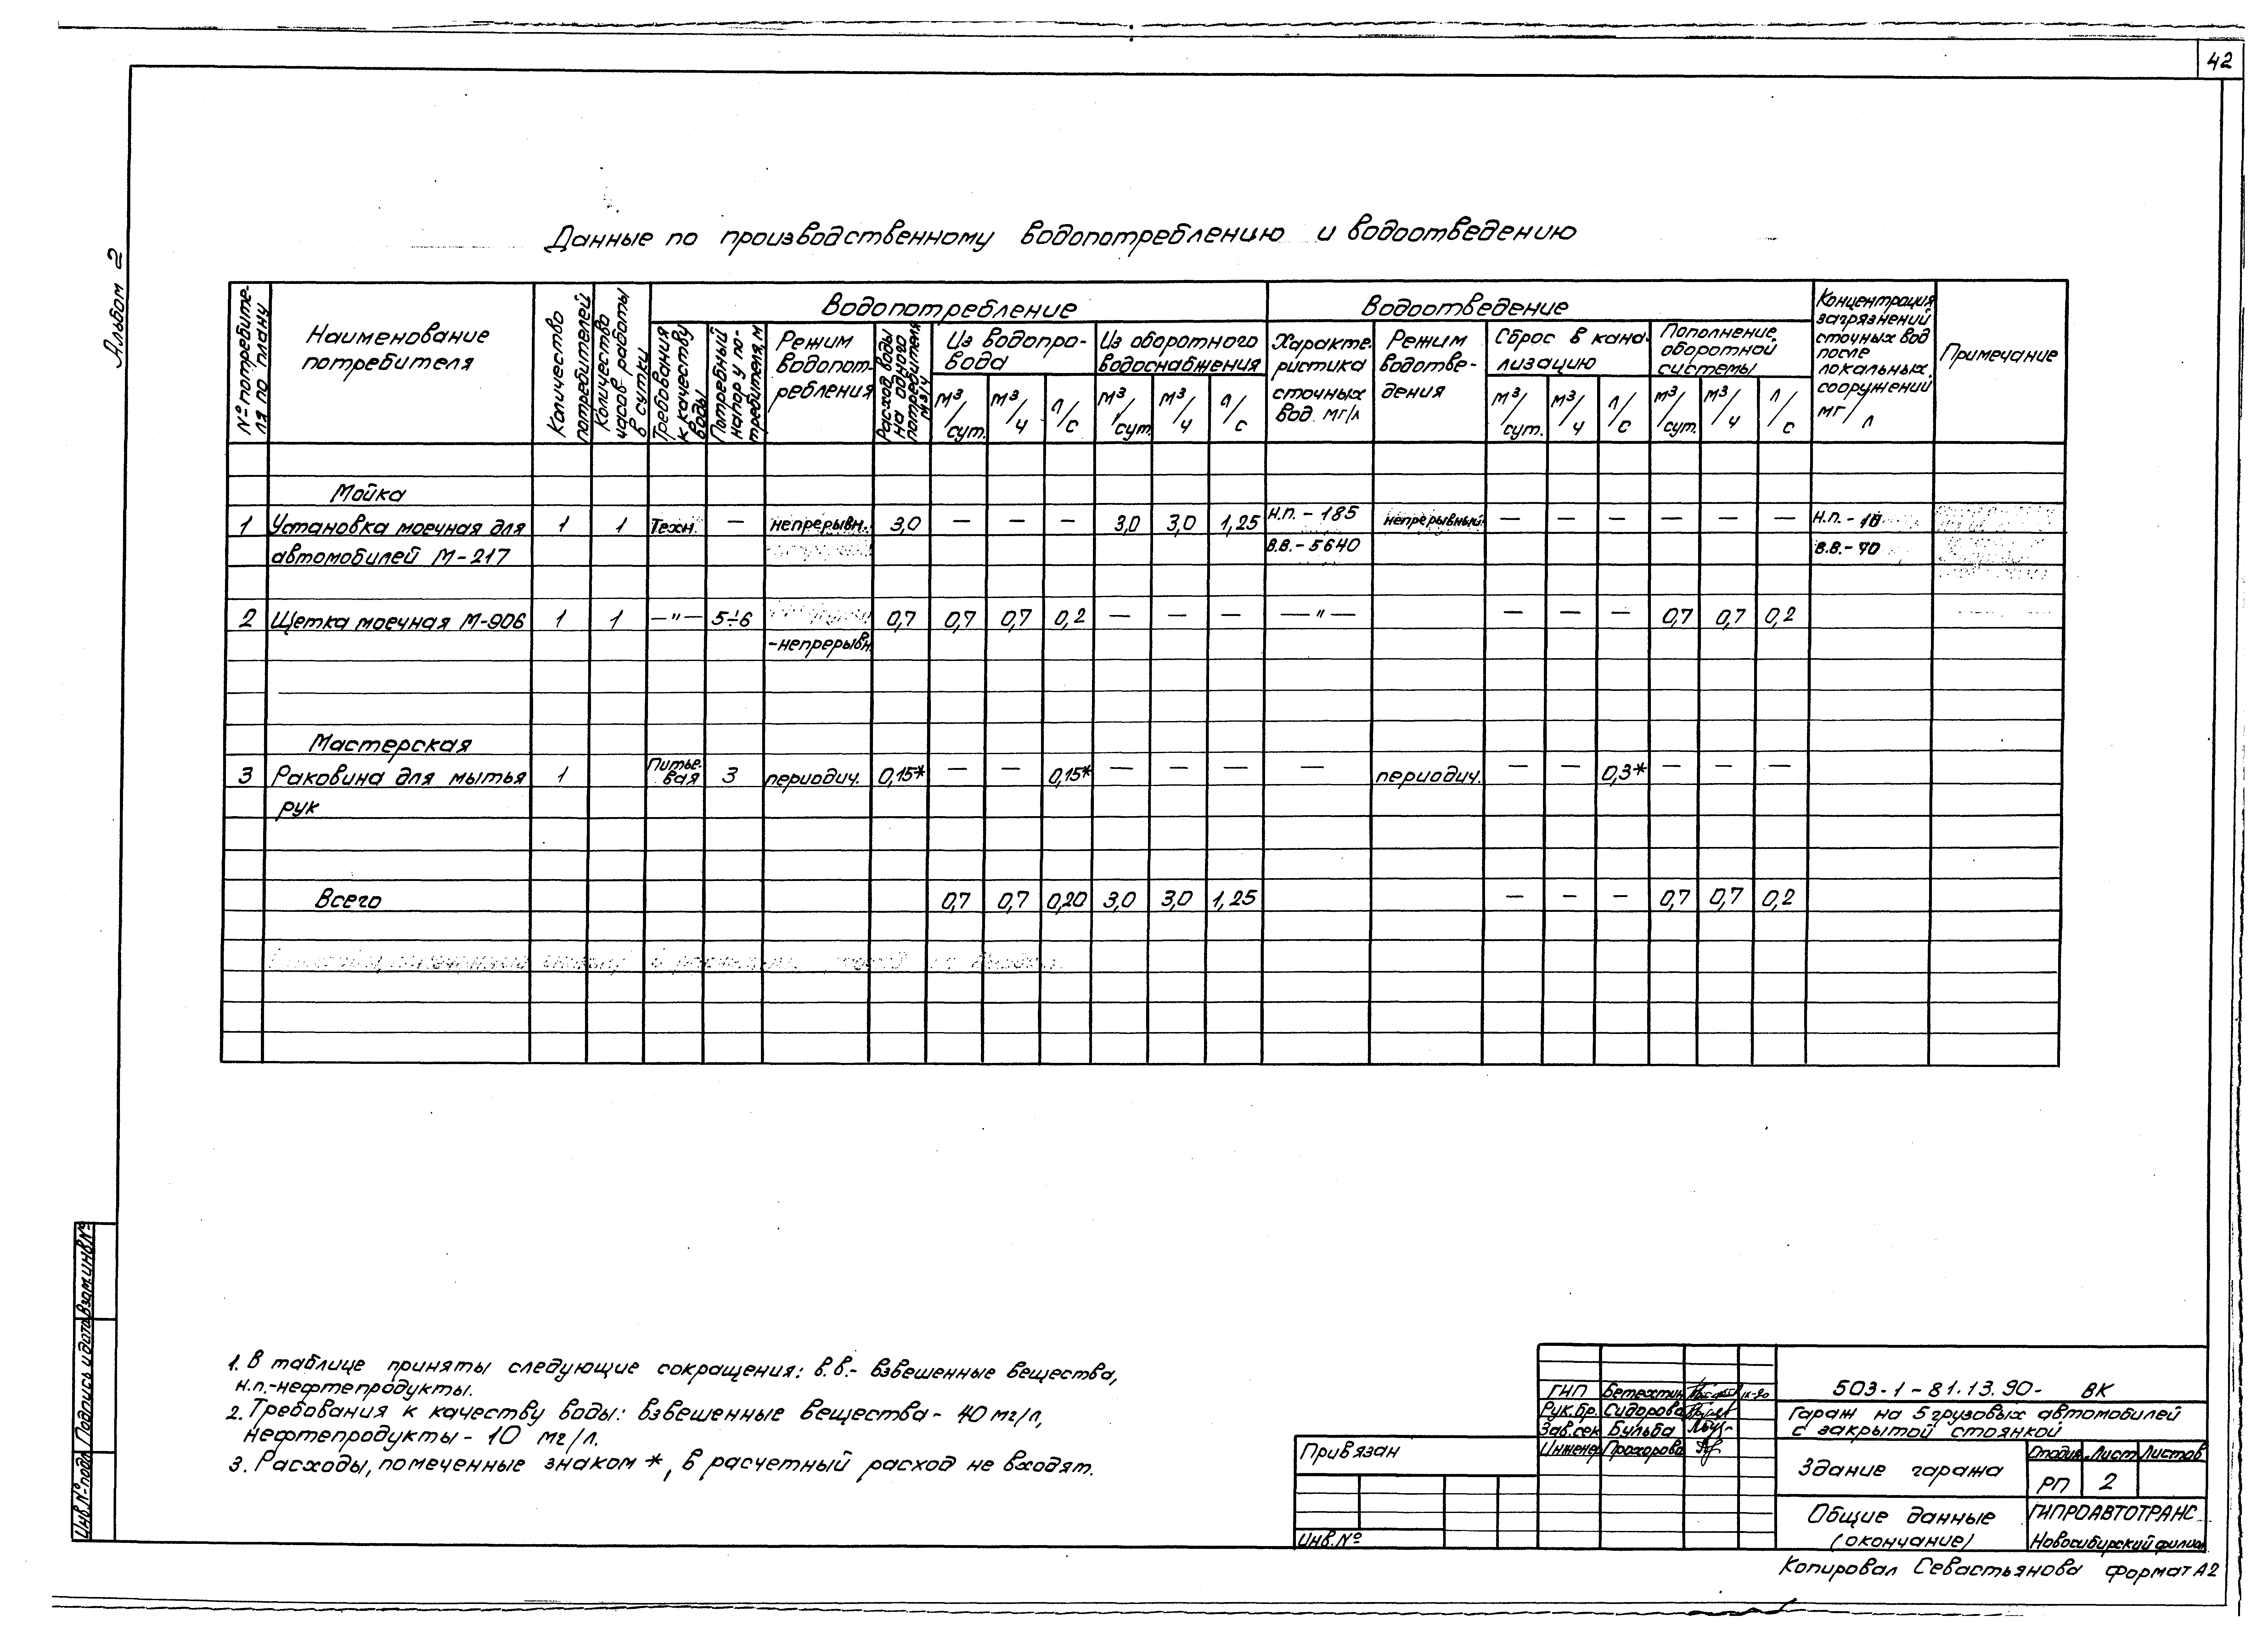 42
Альбом 2
Данные по производственному водопотреблению и водоотведению
№ потребите-
ля по плану
Наименование
потребителя
Количество
потребителей
Количество
часов работы
в сутки
Водопотребление
Требования
к качеству
воды
Потребный
напор у по-
требителя, м
Режим
водопот-
ребления
Расход воды
на одного
потребителя
м3/ч
Из водопро-
вода
м³/сут.
м³/ч
л/с
Из оборотного
водоснабжения
м³/сут.
м³/ч
л/с
Водоотведение
Характе-
ристика
сточных
вод мг/л
Режим
водотве-
дения
Сброс в кана-
лизацию
м³/сут.
м³/ч
л/с
Пополнение
оборотной
системы
м³/сут.
м³/ч
л/с
Концентрация
загрязнений
сточных вод
после
локальных
сооружений
мг/л
Примечание
Мойка
1 Установка моечная для 1 1 Техн. — непрерывн. 3,0 — — — 3,0 3,0 1,25 н.п. - 185 непрерывный — — — — — — н.п. - 10
автомобилей М-217 в.в. - 5640 в.в. - 40
2 Щетка моечная М-906 1 1 —"— 5÷6 0,7 0,7 0,7 0,2 — — — —"— — — — 0,7 0,7 0,2
-непрерывн.
Мастерская
3 Раковина для мытья 1 Питье-вая 3 периодич. 0,15* — — 0,15* — — — — периодич. — — 0,3* — — —
рук
Всего 0,7 0,7 0,20 3,0 3,0 1,25 — — — 0,7 0,7 0,2
1. В таблице приняты следующие сокращения: в.в.- взвешенные вещества,
н.п.-нефтепродукты.
2. Требования к качеству воды: взвешенные вещества - 40 мг/л,
нефтепродукты - 10 мг/л.
3. Расходы, помеченные знаком *, в расчетный расход не входят.
Взам.инв.№
Подпись и дата
Инв.№ подл.
Привязан
Инв.№
ГИП Бетехтин IX-90
Рук.бр. Сидорова
Зав.сек Бульба
Инженер Прохорова
503-1-81.13.90- ВК
Гараж на 5 грузовых автомобилей
с закрытой стоянкой
Здание гаража
Стадия Лист Листов
РП 2
Общие данные
(окончание)
ГИПРОАВТОТРАНС
Новосибирский филиал
Копировал Севастьянова формат А2